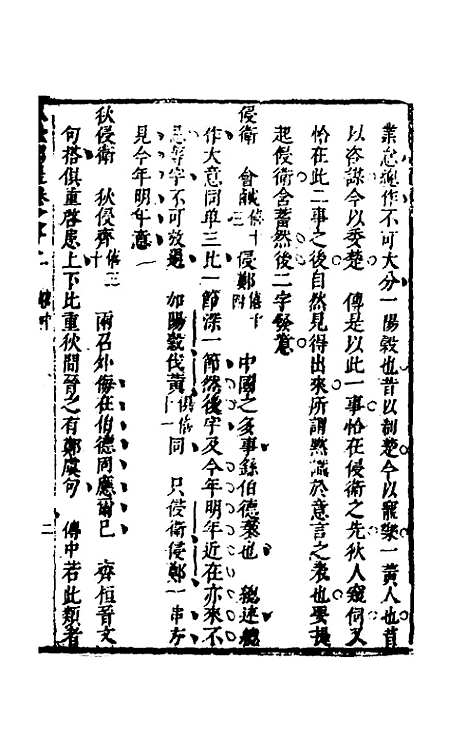 業忽總作不可大分一陽穀也昔以制楚今以飛樂一黃人也昔
以咨謀今以委楚　傳是以此一事恰在侵衛之先狄人窺伺又
恰在此二事之後自然見得出來所謂黙識於意言之表也要提
起侵衛舍蓄然後二字發意
侵衛　會鹹僖十三　侵鄭僖十附　中國之多事繇伯德衰也　總連總
作大意同單三比一節深一節然後字及今年明年近在亦來不
是等字不可放過　如陽穀伐黃僖十一同　只侵衛侵鄭一串方
見今年明年意
秋侵衛　秋侵齊僖三十　兩召外侮在伯德同應爾巳　齊桓晉文
句搭俱重啓患上下比重狄間晉之有鄭虞句　傳中若此類者
二